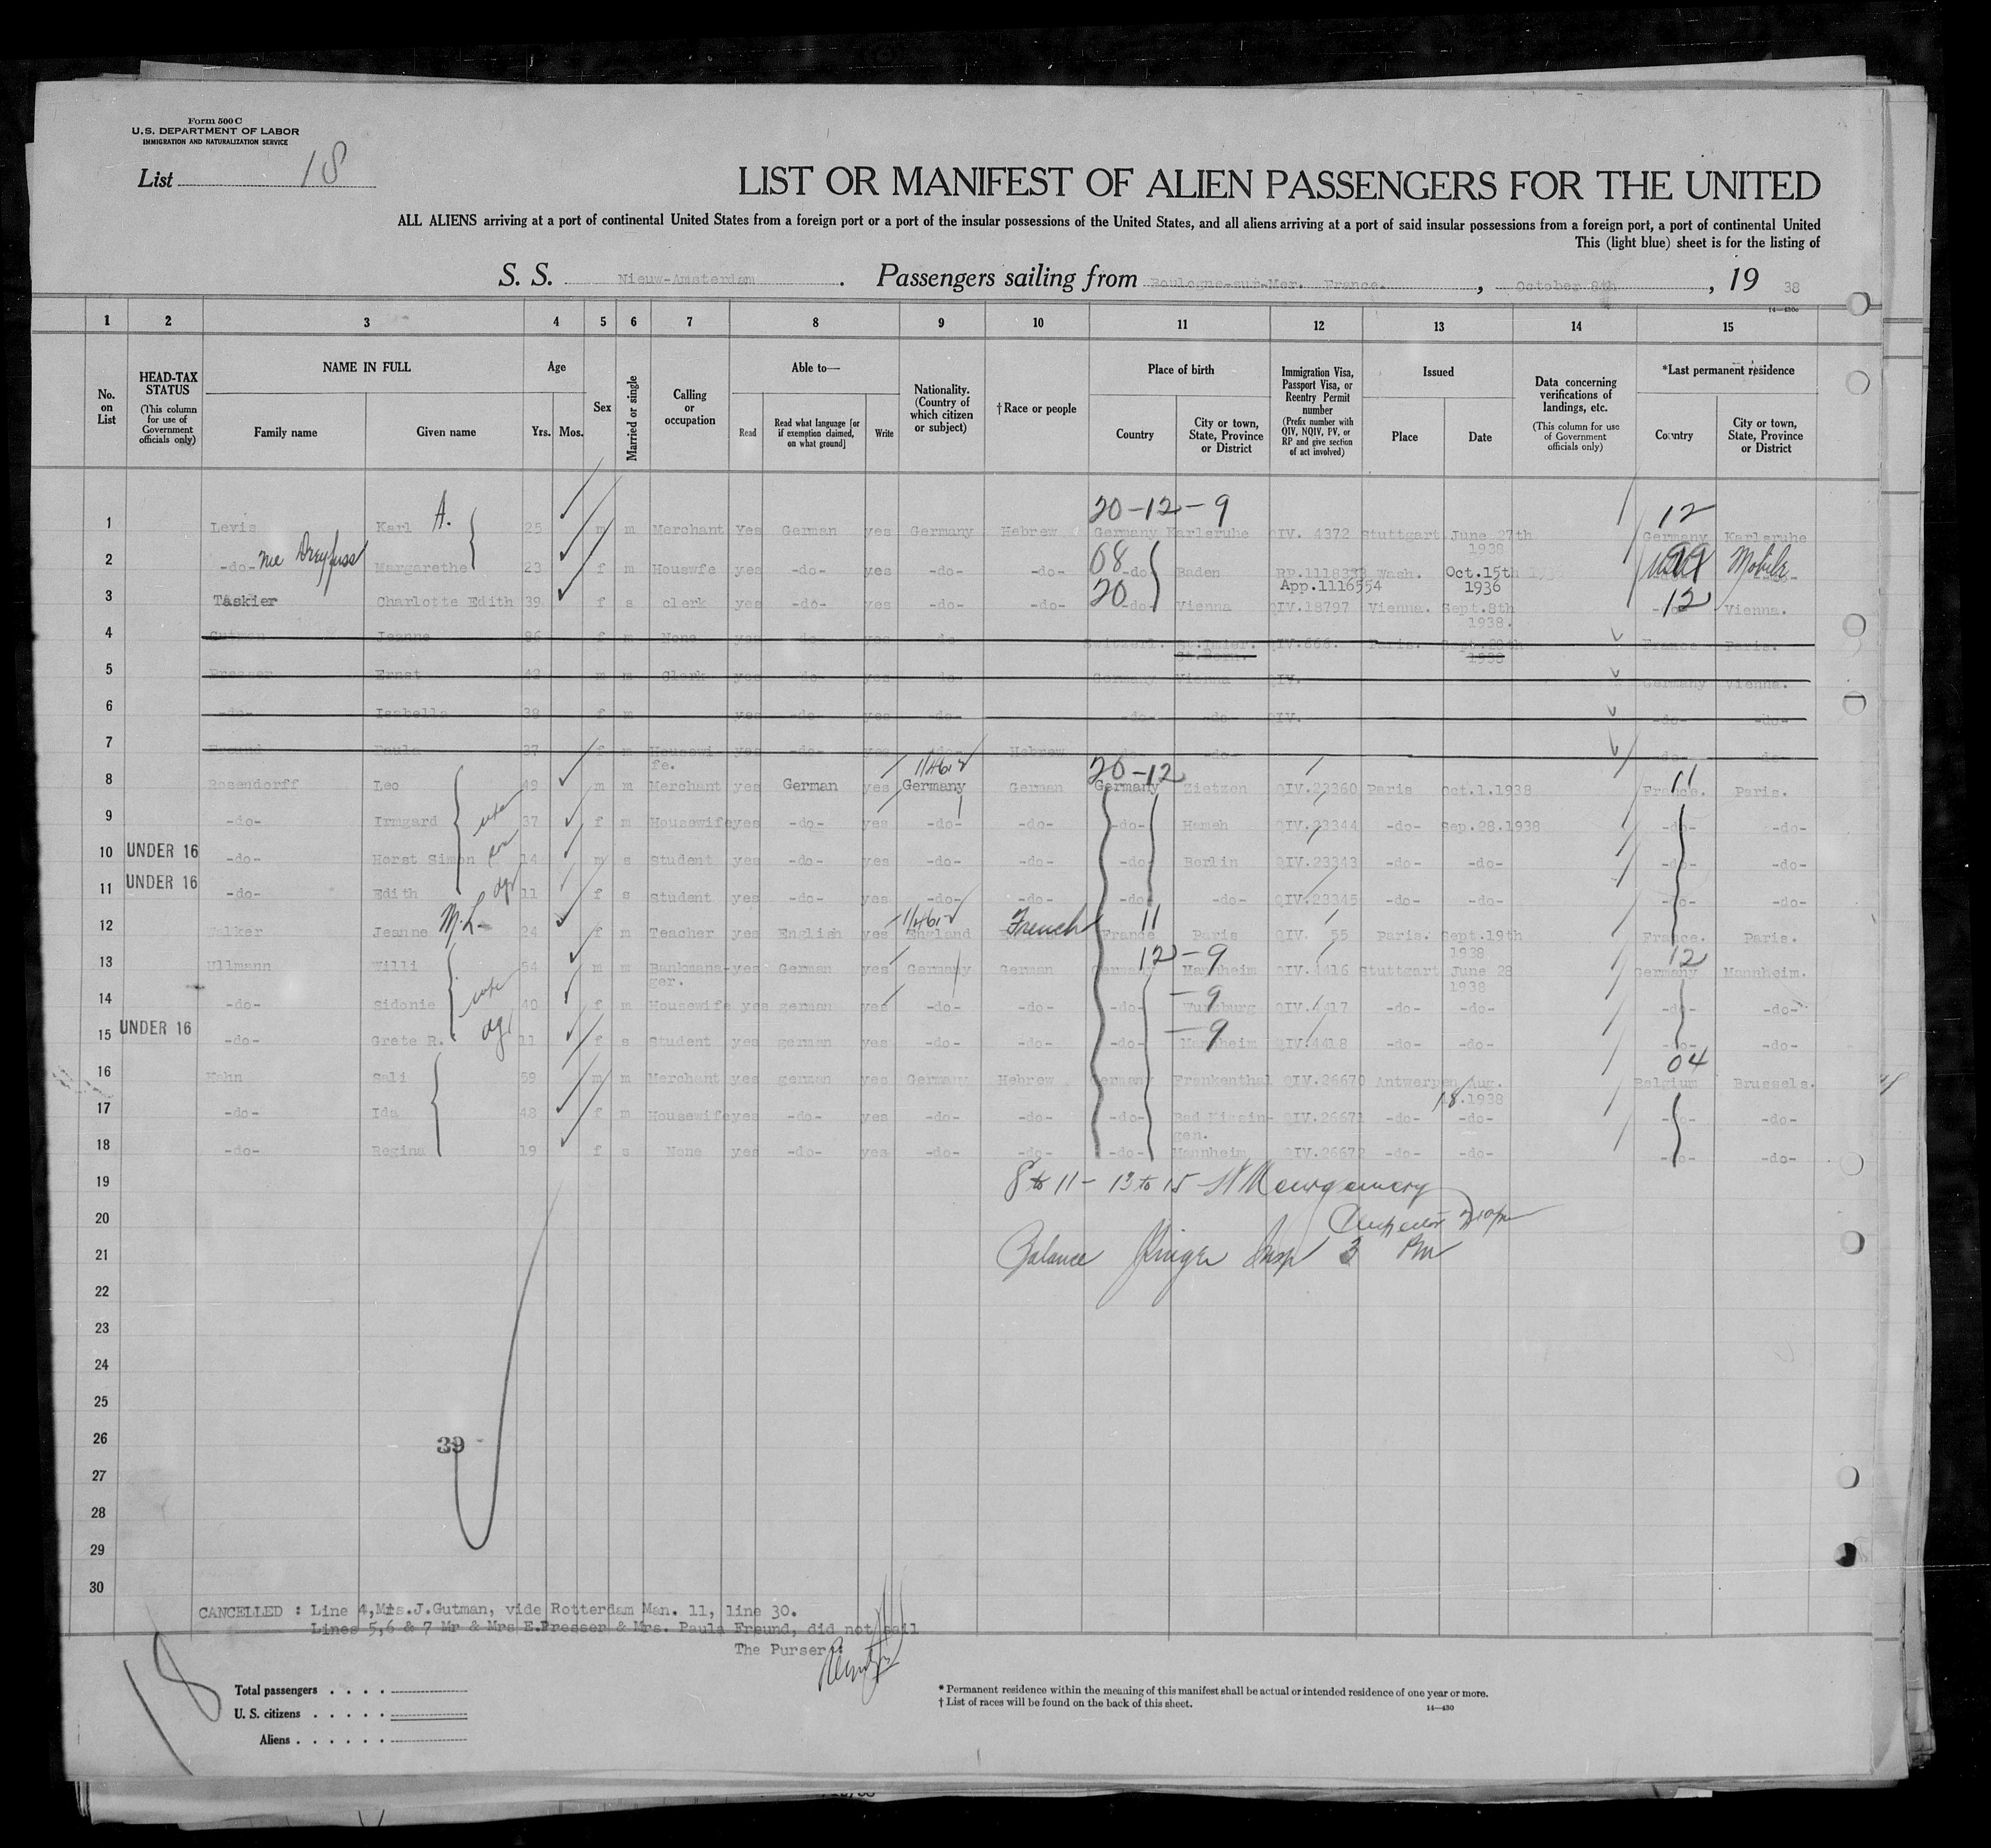 Form 500 C
U.S. DEPARTMENT OF LABOR
IMMIGRATION AND NATURALIZATION SERVICE
List 18
LIST OR MANIFEST OF ALIEN PASSENGERS FOR THE UNITED
ALL ALIENS arriving at a port of continental United States from a foreign port or a port of the insular possessions of the United States, and all aliens arriving at a port of said insular possessions from a foreign port, a port of continental United
This (light blue) sheet is for the listing of
S. S. Nieuw-Amsterdam. Passengers sailing from Boulogne-sur-Mer. France., October 8th, 19 38
14—430c
1 2 3 4 5 6 7 8 9 10 11 12 13 14 15
No. on List
HEAD-TAX STATUS (This column for use of Government officials only)
NAME IN FULL Family name Given name
Age Yrs. Mos.
Sex
Married or single
Calling or occupation
Able to— Read Read what language [or if exemption claimed, on what ground] Write
Nationality. (Country of which citizen or subject)
†Race or people
Place of birth Country City or town, State, Province or District
Immigration Visa, Passport Visa, or Reentry Permit number (Prefix number with QIV, NQIV, PV, or RP and give section of act involved)
Issued Place Date
Data concerning verifications of landings, etc. (This column for use of Government officials only)
*Last permanent residence Country City or town, State, Province or District
20-12-9 12
1 Levis Karl A. 25 m m Merchant Yes German yes Germany Hebrew Germany Karlsruhe QIV. 4372 Stuttgart June 27th 1938 Germany Karlsruhe
2 -do- nee Dreyfuss Margarethe 23 f m Houswfe yes -do- yes -do- -do- 08 -do- Baden RP.1118332 Wash. Oct.15th USA 99 Mobile
App.1116554 1936
3 Taskier Charlotte Edith 39 f s clerk yes -do- yes -do- -do- 20 -do- Vienna QIV.18797 Vienna. Sept.8th 1938. 12 Vienna.
4 Gutman Jeanne 86 f m None yes -do- yes -do- Switzerl. St.Imier. QIV.666. Paris. Sept.28th 1938 France Paris.
5 Presser Ernst 42 m m Clerk yes -do- yes -do- Germany Vienna QIV. Germany Vienna.
6 -do- Isabella 38 f m yes -do- yes -do- -do- -do- QIV. -do- -do-
7 Freund Paula 37 f m Housewife. yes -do- yes -do- Hebrew -do- -do- -do- -do-
11462 20-12 11
8 Rosendorff Leo 49 m m Merchant yes German yes Germany German Germany Zietzen QIV.23360 Paris Oct.1.1938 France. Paris.
9 -do- Irmgard 37 f m Housewife yes -do- yes -do- -do- -do- Hameh QIV.23344 -do- Sep.28.1938 -do- -do-
10 UNDER 16 -do- Horst Simon 14 m s Student yes -do- yes -do- -do- -do- Berlin QIV.23343 -do- -do- -do- -do-
11 UNDER 16 -do- Edith 11 f s Student yes -do- yes -do- -do- -do- -do- QIV.23345 -do- -do- -do- -do-
11462 11
12 Walker Jeanne M.L. 24 f m Teacher yes English yes England French France Paris QIV. 55 Paris. Sept.19th 1938 France. Paris.
12-9 12
13 Ullmann Willi 54 m m Bankmanager. yes German yes Germany German Germany Mannheim QIV.4416 Stuttgart June 28 1938 Germany Mannheim.
14 -do- Sidonie 40 f m Housewife yes german yes -do- -do- -do- -9 Wurzburg QIV.4417 -do- -do- -do- -do-
15 UNDER 16 -do- Grete R. 11 f s Student yes german yes -do- -do- -do- -9 Mannheim QIV.4418 -do- -do- -do- -do-
04
16 Kahn Sali 59 m m Merchant yes german yes Germany Hebrew Germany Frankenthal QIV.26670 Antwerpen Aug. 18.1938 Belgium Brussels.
17 -do- Ida 48 f m Housewife yes -do- yes -do- -do- -do- Bad Kissingen. QIV.26671 -do- -do- -do- -do-
18 -do- Regina 19 f s None yes -do- yes -do- -do- -do- Mannheim QIV.26672 -do- -do- -do- -do-
19 8 to 11 - 13 to 15
20
21 Balance Insp 3 PM
22
23
24
25
26 39
27
28
29
30
CANCELLED : Line 4,Mrs.J.Gutman, vide Rotterdam Man. 11, line 30.
Lines 5,6 & 7 Mr & Mrs E.Presser & Mrs. Paula Freund, did not sail
The Purser:
18
Total passengers
U. S. citizens
Aliens
* Permanent residence within the meaning of this manifest shall be actual or intended residence of one year or more.
† List of races will be found on the back of this sheet.
14—430